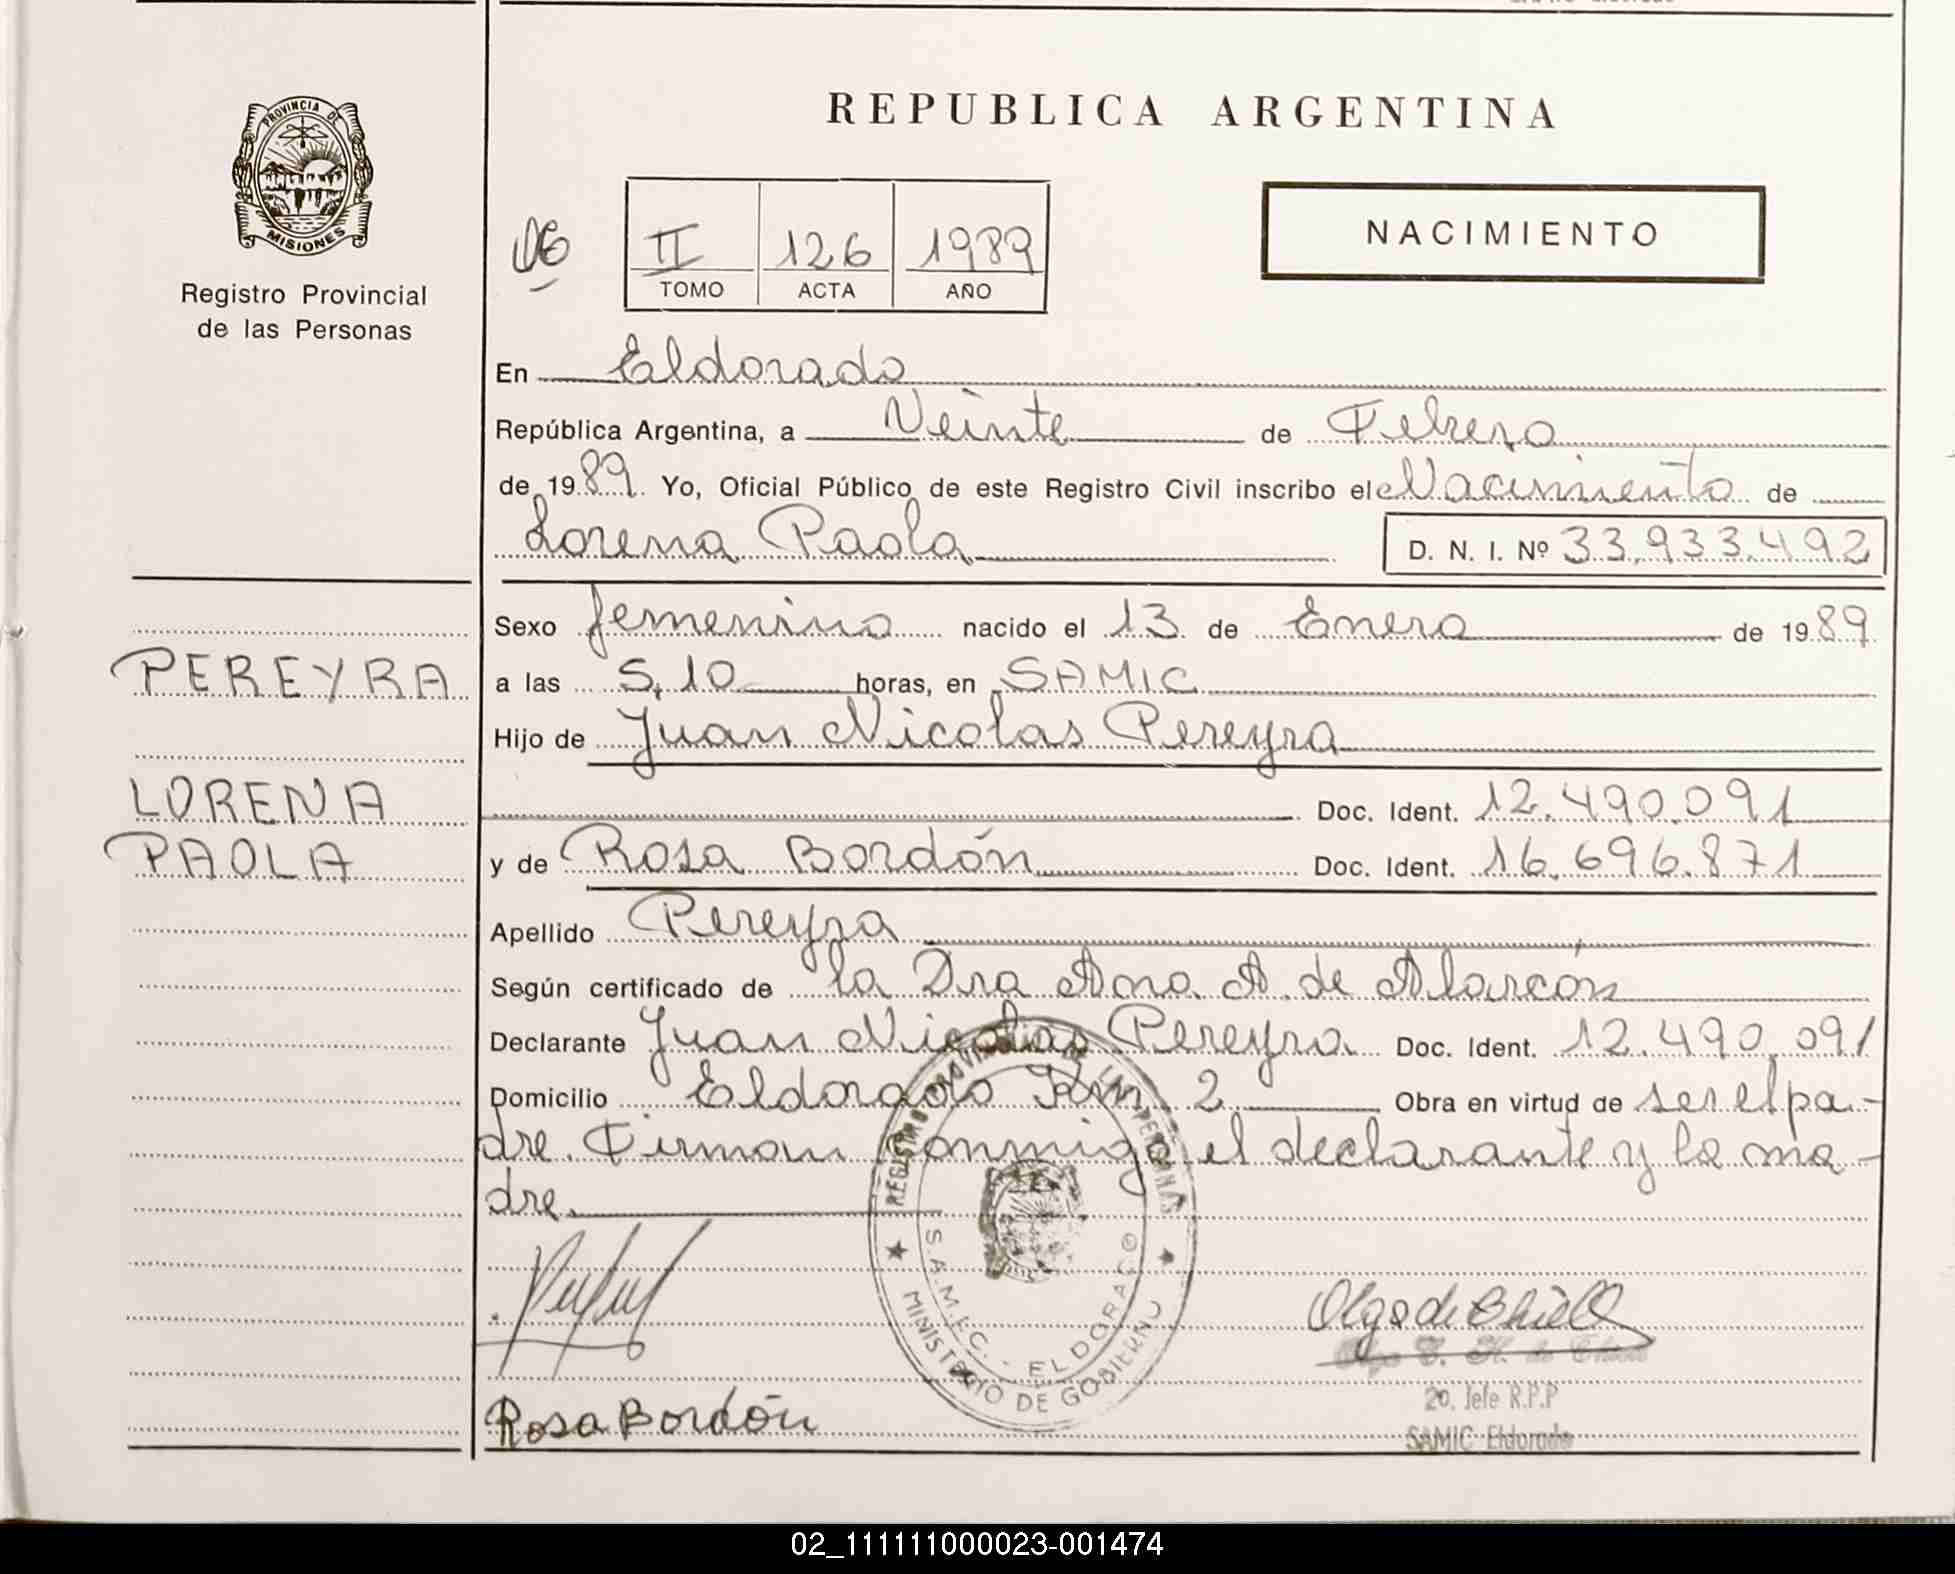 REPUBLICA ARGENTINA
PROVINCIA DE
MISIONES
Registro Provincial
de las Personas
06
II 126 1989
TOMO ACTA AÑO
NACIMIENTO
En Eldorado
República Argentina, a Veinte de Febrero
de 1989. Yo, Oficial Público de este Registro Civil inscribo el Nacimiento de
Lorena Paola D. N. I. Nº 33.933.492
PEREYRA
LORENA
PAOLA
Sexo femenino nacido el 13 de Enero de 1989
a las 5,10 horas, en SAMIC
Hijo de Juan Nicolas Pereyra
Doc. Ident. 12.490.091
y de Rosa Bordón Doc. Ident. 16.696.871
Apellido Pereyra
Según certificado de la Dra Ana A. de Alarcón
Declarante Juan Nicolas Pereyra Doc. Ident. 12.490.091
Domicilio Eldorado Km. 2 Obra en virtud de ser el pa-
dre. Firman conmigo el declarante y la ma-
dre.
REGISTRO PROVINCIAL DE LAS PERSONAS
S.A.M.I.C. - ELDORADO
MINISTERIO DE GOBIERNO
Rosa Bordón
2o. Jefe R.P.P
SAMIC Eldorado
02_111111000023-001474